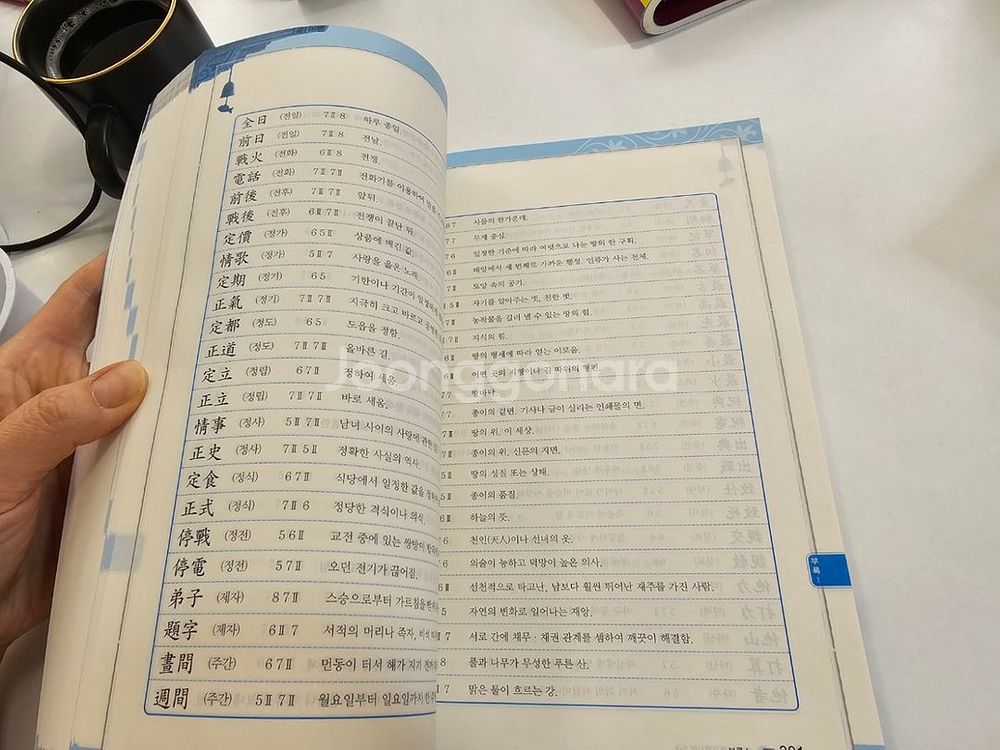 全日 (전일) 7Ⅱ 8 하루 종일.
前日 (전일) 7Ⅱ 8 전날.
戰火 (전화) 6Ⅱ 8 전쟁.
電話 (전화) 7Ⅱ 7Ⅱ 전화기를 이용하여
前後 (전후) 7Ⅱ 7Ⅱ 앞뒤.
戰後 (전후) 6Ⅱ 7Ⅱ 전쟁이 끝난 뒤.
定價 (정가) 6 5Ⅱ 상품에 매긴 값.
情歌 (정가) 5Ⅱ 7 사랑을 읊은 노래.
定期 (정기) 6 5 기한이나 기간이
正氣 (정기) 7Ⅱ 7Ⅱ 지극히 크고 바르고
定都 (정도) 6 5 도읍을 정함.
正道 (정도) 7Ⅱ 7Ⅱ 올바른 길.
定立 (정립) 6 7Ⅱ 정하여 세움.
正立 (정립) 7Ⅱ 7Ⅱ 바로 세움.
情事 (정사) 5Ⅱ 7Ⅱ 남녀 사이의 사랑에 관한
正史 (정사) 7Ⅱ 5Ⅱ 정확한 사실의 역사.
定食 (정식) 6 7Ⅱ 식당에서 일정한 값을
正式 (정식) 7Ⅱ 6 정당한 격식이나 의식.
停戰 (정전) 5 6Ⅱ 교전 중에 있는 쌍방이
停電 (정전) 5 7Ⅱ 오던 전기가 끊어짐.
弟子 (제자) 8 7Ⅱ 스승으로부터 가르침을
題字 (제자) 6Ⅱ 7 서적의 머리나 족자,
晝間 (주간) 6 7Ⅱ 먼동이 터서 해가 지기
週間 (주간) 5Ⅱ 7Ⅱ 월요일부터 일요일까지
8 7 사물의 한가운데.
7 7 무게 중심.
7 6 일정한 기준에 따라 여럿으로 나눈 땅의 한 구획.
6Ⅱ 태양에서 세 번째로 가까운 행성. 인류가 사는 천체.
7Ⅱ 토양 속의 공기.
5Ⅱ 자기를 알아주는 벗, 친한 벗.
7Ⅱ 농작물을 길러 낼 수 있는 땅의 힘.
7Ⅱ 지식의 힘.
6Ⅱ 땅의 형세에 따라 얻는 이로움.
6Ⅱ 어떤 곳의 지형이나 길 따위의 형편.
땅바닥.
7 7 종이의 겉면. 기사나 글이 실리는 인쇄물의 면.
7Ⅱ 땅의 위. 이 세상.
7Ⅱ 종이의 위. 신문의 지면.
5Ⅱ 땅의 성질 또는 상태.
5Ⅱ 종이의 품질.
6Ⅱ 하늘의 뜻.
6 천인(天人)이나 선녀의 옷.
6 의술이 능하고 덕망이 높은 의사.
6Ⅱ 선천적으로 타고난, 남보다 훨씬 뛰어난 재주를 가진 사람.
5 자연의 변화로 일어나는 재앙.
7 서로 간에 채무 · 채권 관계를 셈하여 깨끗이 해결함.
8 풀과 나무가 무성한 푸른 산.
7 맑은 물이 흐르는 강.
부록 Ⅰ
Joonggonara